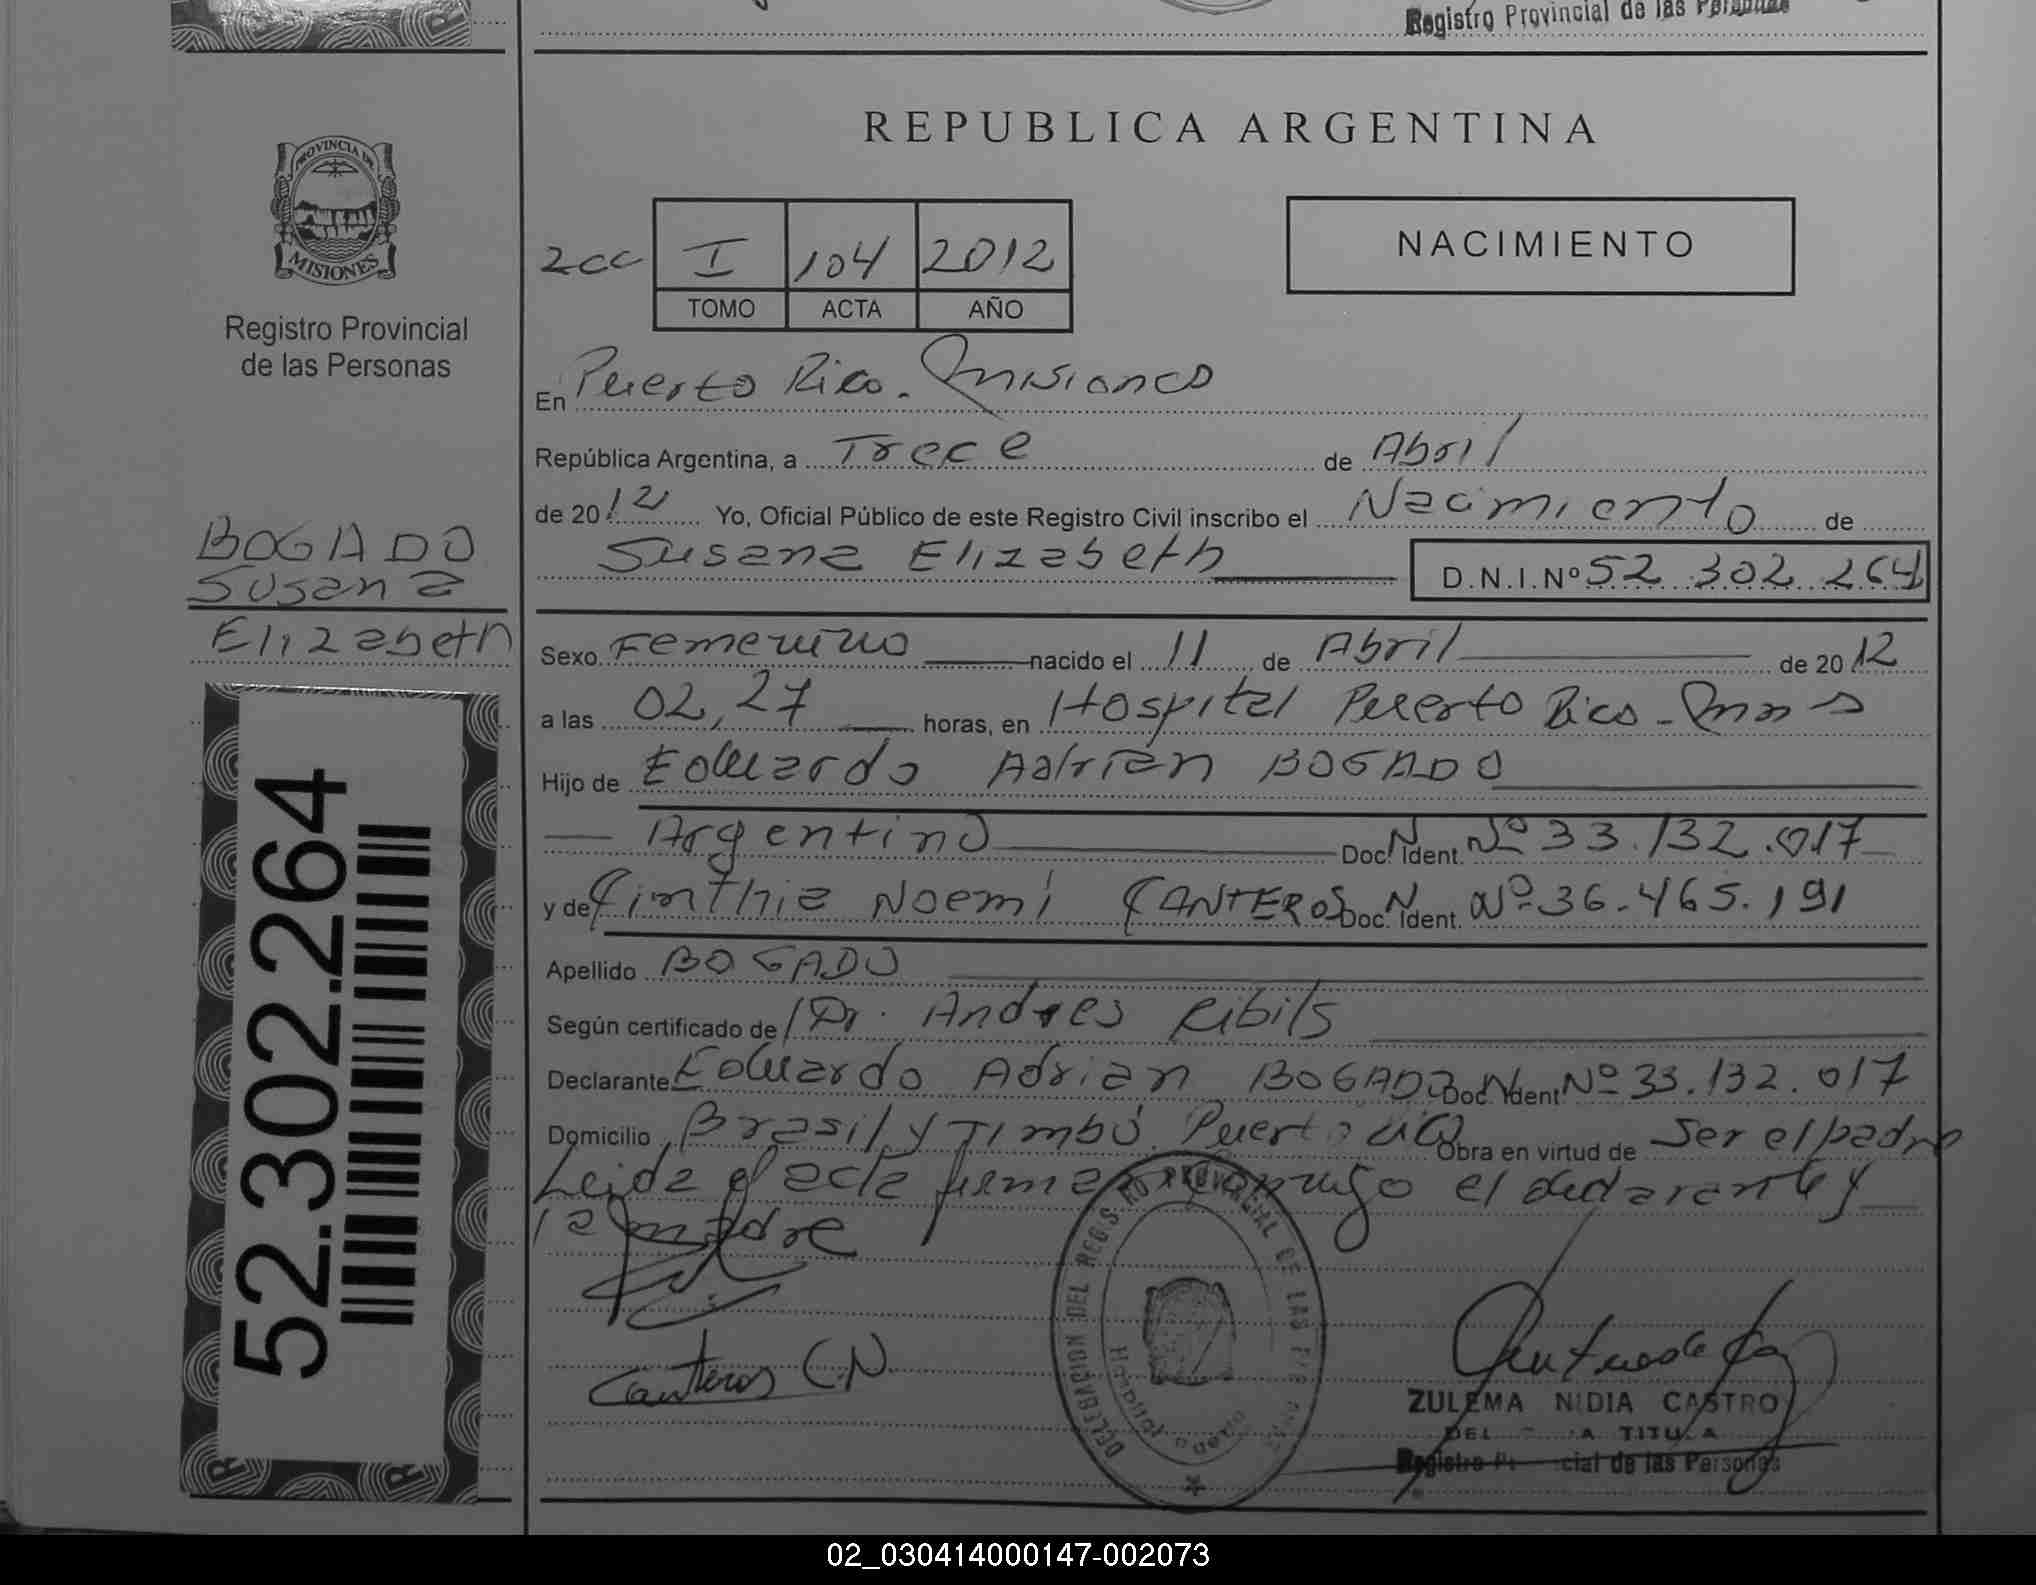 Registro Provincial de las Personas
REPUBLICA ARGENTINA
PROVINCIA DE
MISIONES
Registro Provincial
de las Personas
2cc I 104 2012
TOMO ACTA AÑO
NACIMIENTO
En Puerto Rico. Misiones
República Argentina, a Trece de Abril
de 2012 Yo, Oficial Público de este Registro Civil inscribo el Nacimiento de
Susana Elizabeth D.N.I.Nº 52.302.264
BOGADO
Susana
Elizabeth
Sexo Femenino nacido el 11 de Abril de 2012
a las 02,27 horas, en Hospital Puerto Rico - Mnes
Hijo de Eduardo Adrián BOGADO
Argentino Doc. Ident. N Nº 33.132.017
y de Cinthia Noemí CANTEROS Doc. Ident. N Nº 36.465.191
Apellido BOGADO
Según certificado de Dr. Andres Ribils
Declarante Eduardo Adrian BOGADO Doc. Ident. N Nº 33.132.017
Domicilio Brasil y Timbú. Puerto Rico Obra en virtud de Ser el padre
Leida el acta firman conmigo el declarante y
la madre
52.302.264
Canteros C.N
DELEGACION DEL REGISTRO PROVINCIAL DE LAS PERSONAS
Hospital
ZULEMA NIDIA CASTRO
TITULAR
Registro Provincial de las Personas
02_030414000147-002073